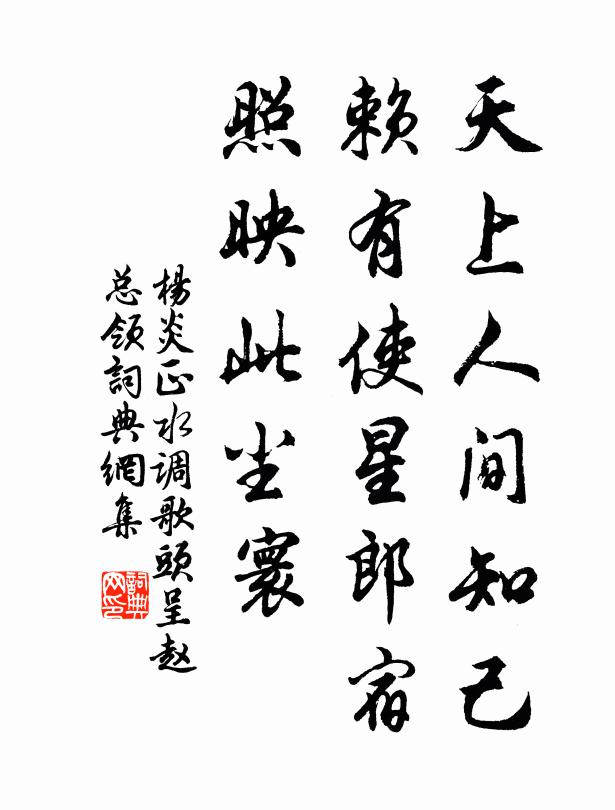 天上人间知己
赖有使星郎宿
照映此尘寰
楊炎正水调歌頭呈赵
总领詞典網集
詞典网印